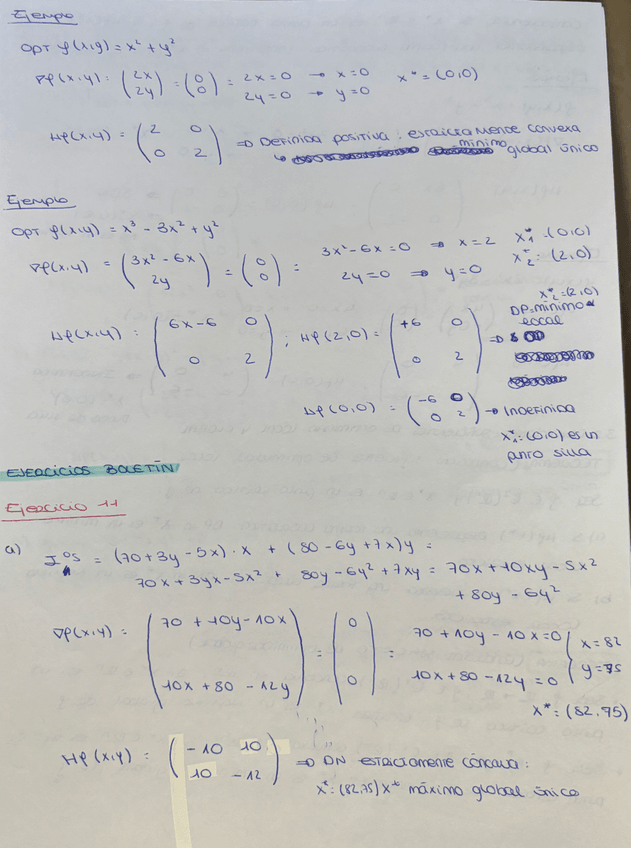 Ejemplo
OPT f(x,y) = x² + y²
∇f(x,y) = (2x 2y) = (0 0) = 2x = 0 → x = 0 2y = 0 → y = 0 x* = (0,0)
Hf(x,y) = (2 0 0 2) ⇒ Definida positiva: estrictamente convexa
mínimo global único
Ejemplo
OPT f(x,y) = x³ - 3x² + y²
∇f(x,y) = (3x² - 6x 2y) = (0 0) = 3x² - 6x = 0 ⇒ x = 2 2y = 0 ⇒ y = 0 x₁* = (0,0) x₂* = (2,0)
Hf(x,y) = (6x-6 0 0 2) ; Hf(2,0) = (+6 0 0 2) ⇒ x₂* = (2,0) DP = mínimo local
Hf(0,0) = (-6 0 0 2) → Indefinida
x₁* = (0,0) es un
punto silla
EJERCICIOS BOLETÍN
Ejercicio 11
a) I = (70 + 3y - 5x) · x + (80 - 6y + 7x) y =
70x + 3yx - 5x² + 80y - 6y² + 7xy = 70x + 10xy - 5x²
+ 80y - 6y²
∇f(x,y) = (70 + 10y - 10x 10x + 80 - 12y) = (0 0) = 70 + 10y - 10x = 0 10x + 80 - 12y = 0 x = 82 y = 75
x* = (82,75)
Hf(x,y) = (-10 10 10 -12) ⇒ DN estrictamente cóncava:
x* = (82,75) x* máximo global único